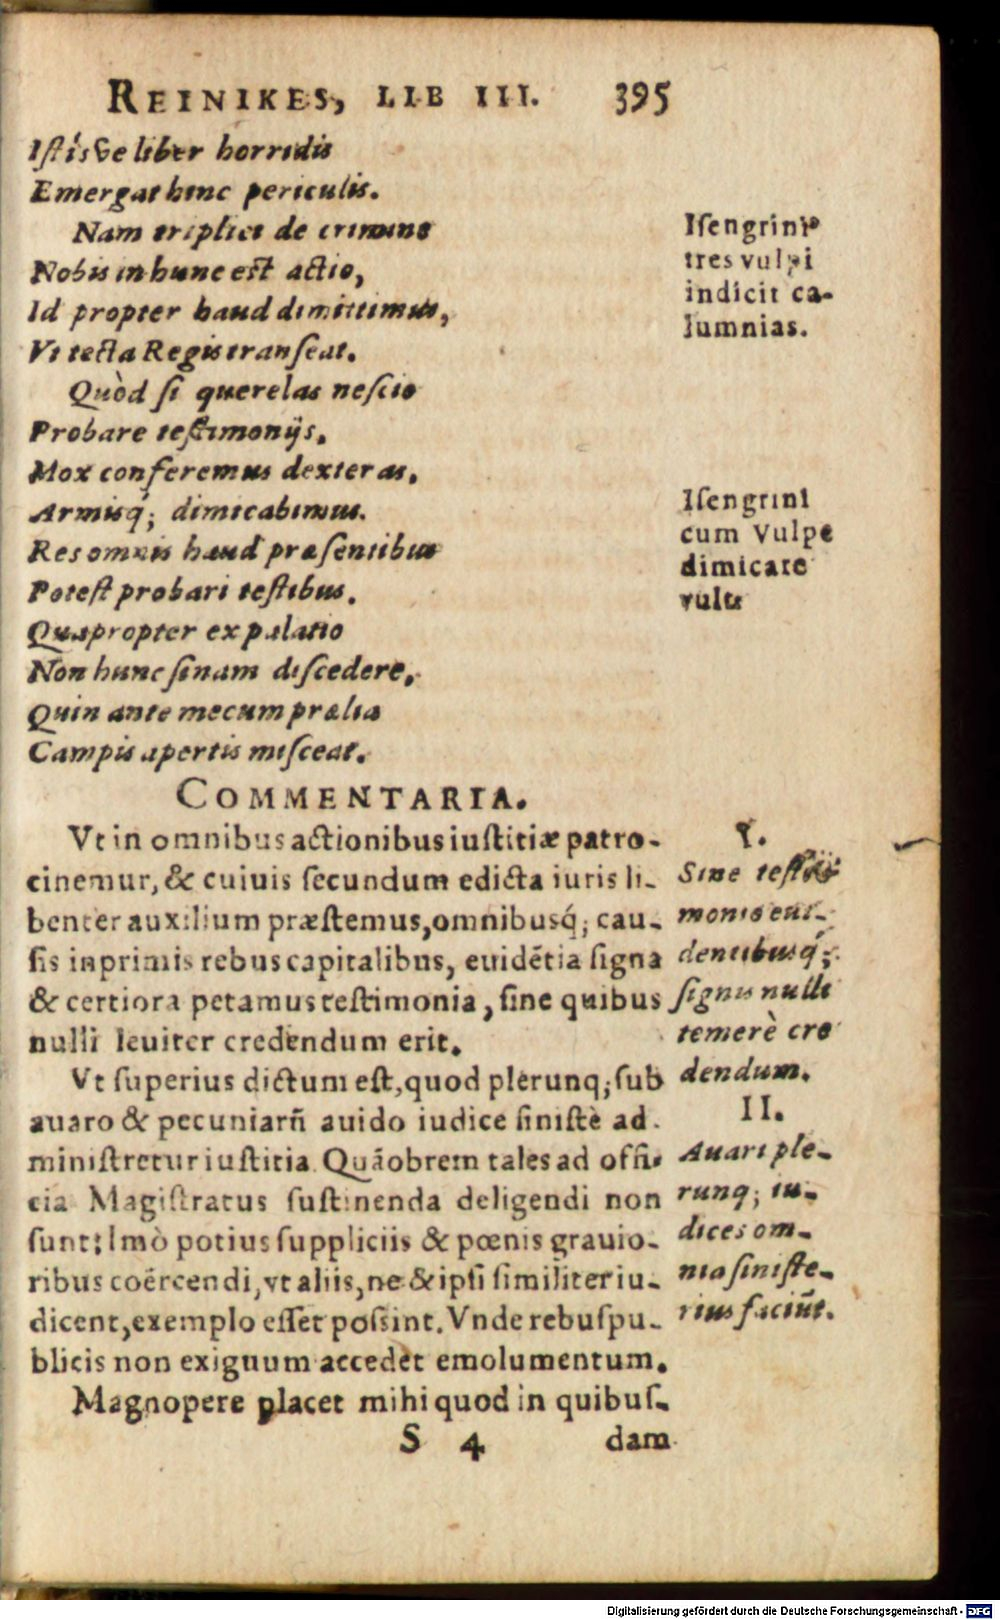 REINIKES, LIB III. 395
Iſtísve liber horridis
Emergat hinc periculis.
Nam triplici de crimine
Nobis in hunc eſt actio,
Id propter haud dimittimus,
Vt tecta Regis tranſeat.
Quòd ſi querelas neſcio
Probare teſtimonijs,
Mox conferemus dexteras,
Armisq́; dimicabimus.
Res omnis haud præſentibus
Poteſt probari teſtibus.
Quapropter ex palatio
Non hunc ſinam diſcedere,
Quin ante mecum prælia
Campis apertis miſceat.
Iſengrinꝰ
tres vulpi
indicit ca-
lumnias.
Iſengrini
cum Vulpe
dimicare
vult
COMMENTARIA.
Vt in omnibus actionibus iuſtitiæ patro-
cinemur, & cuiuis ſecundum edicta iuris li-
benter auxilium præſtemus, omnibusq́; cau-
ſis inprimis rebus capitalibus, euidētia ſigna
& certiora petamus teſtimonia, ſine quibus
nulli leuiter credendum erit.
Vt ſuperius dictum eſt, quod plerunq; ſub
auaro & pecuniarū auido iudice ſiniſtè ad-
miniſtretur iuſtitia. Quāobrem tales ad offi-
cia Magiſtratus ſuſtinenda deligendi non
ſunt: Imò potius ſuppliciis & pœnis grauio-
ribus coërcendi, vt aliis, ne & ipſi ſimiliter iu-
dicent, exemplo eſſet poſsint. Vnde rebuſpu-
blicis non exiguum accedet emolumentum.
Magnopere placet mihi quod in quibuſ-
I.
Sine teſti-
monio eui-
dentibusq́;
ſignis nulli
temerè cre
dendum.
II.
Auari ple-
runq; iu-
dices om-
nia ſiniſte-
rius faciūt.
S 4 dam
Digitalisierung gefördert durch die Deutsche Forschungsgemeinschaft - DFG